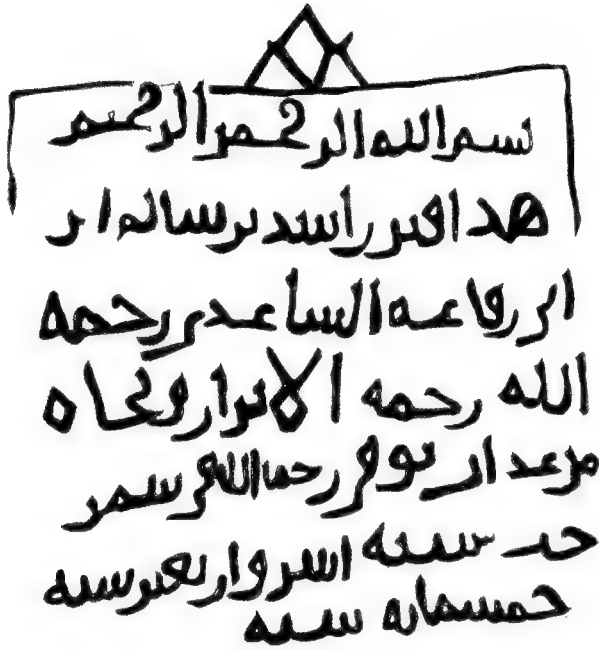 بسم الله الرحمن الرحيم
هذا قبر راشد بن سالم ابن
ابن رفاعة الساعدي رحمه
الله رحمة الأبرار ونجاه
من توفي رحمه الله في شهر
سنة اثنين وأربعين سنة
خمسمائة سنة